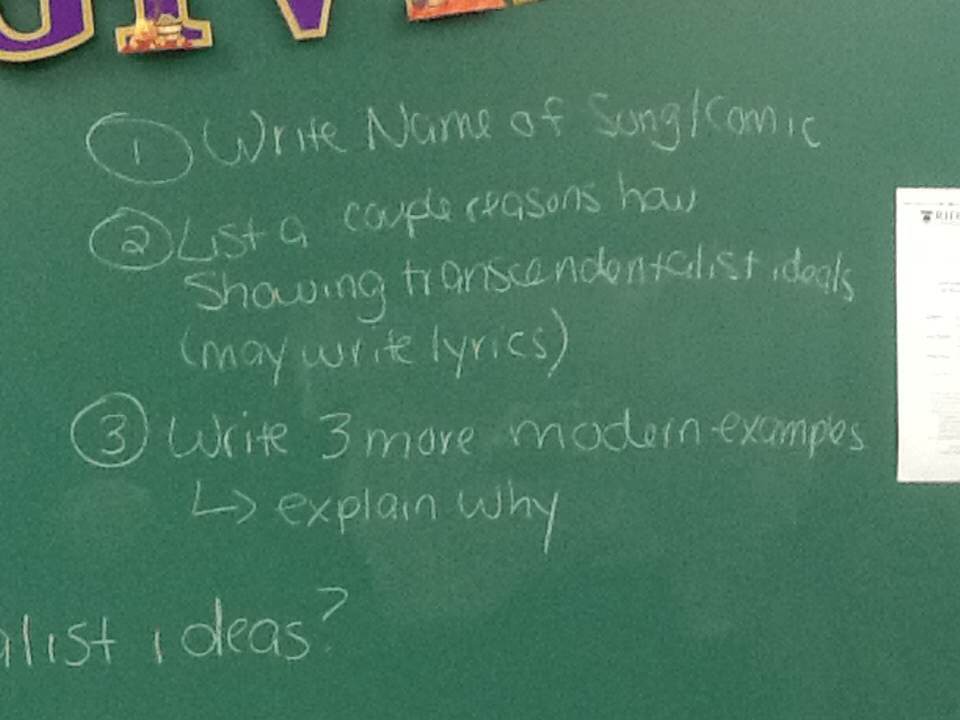 GIVE
① Write Name of Song/Comic
② List a couple reasons how
Showing transcendentalist ideals
(may write lyrics)
③ Write 3 more modern examples
↳ explain why
alist ideas?